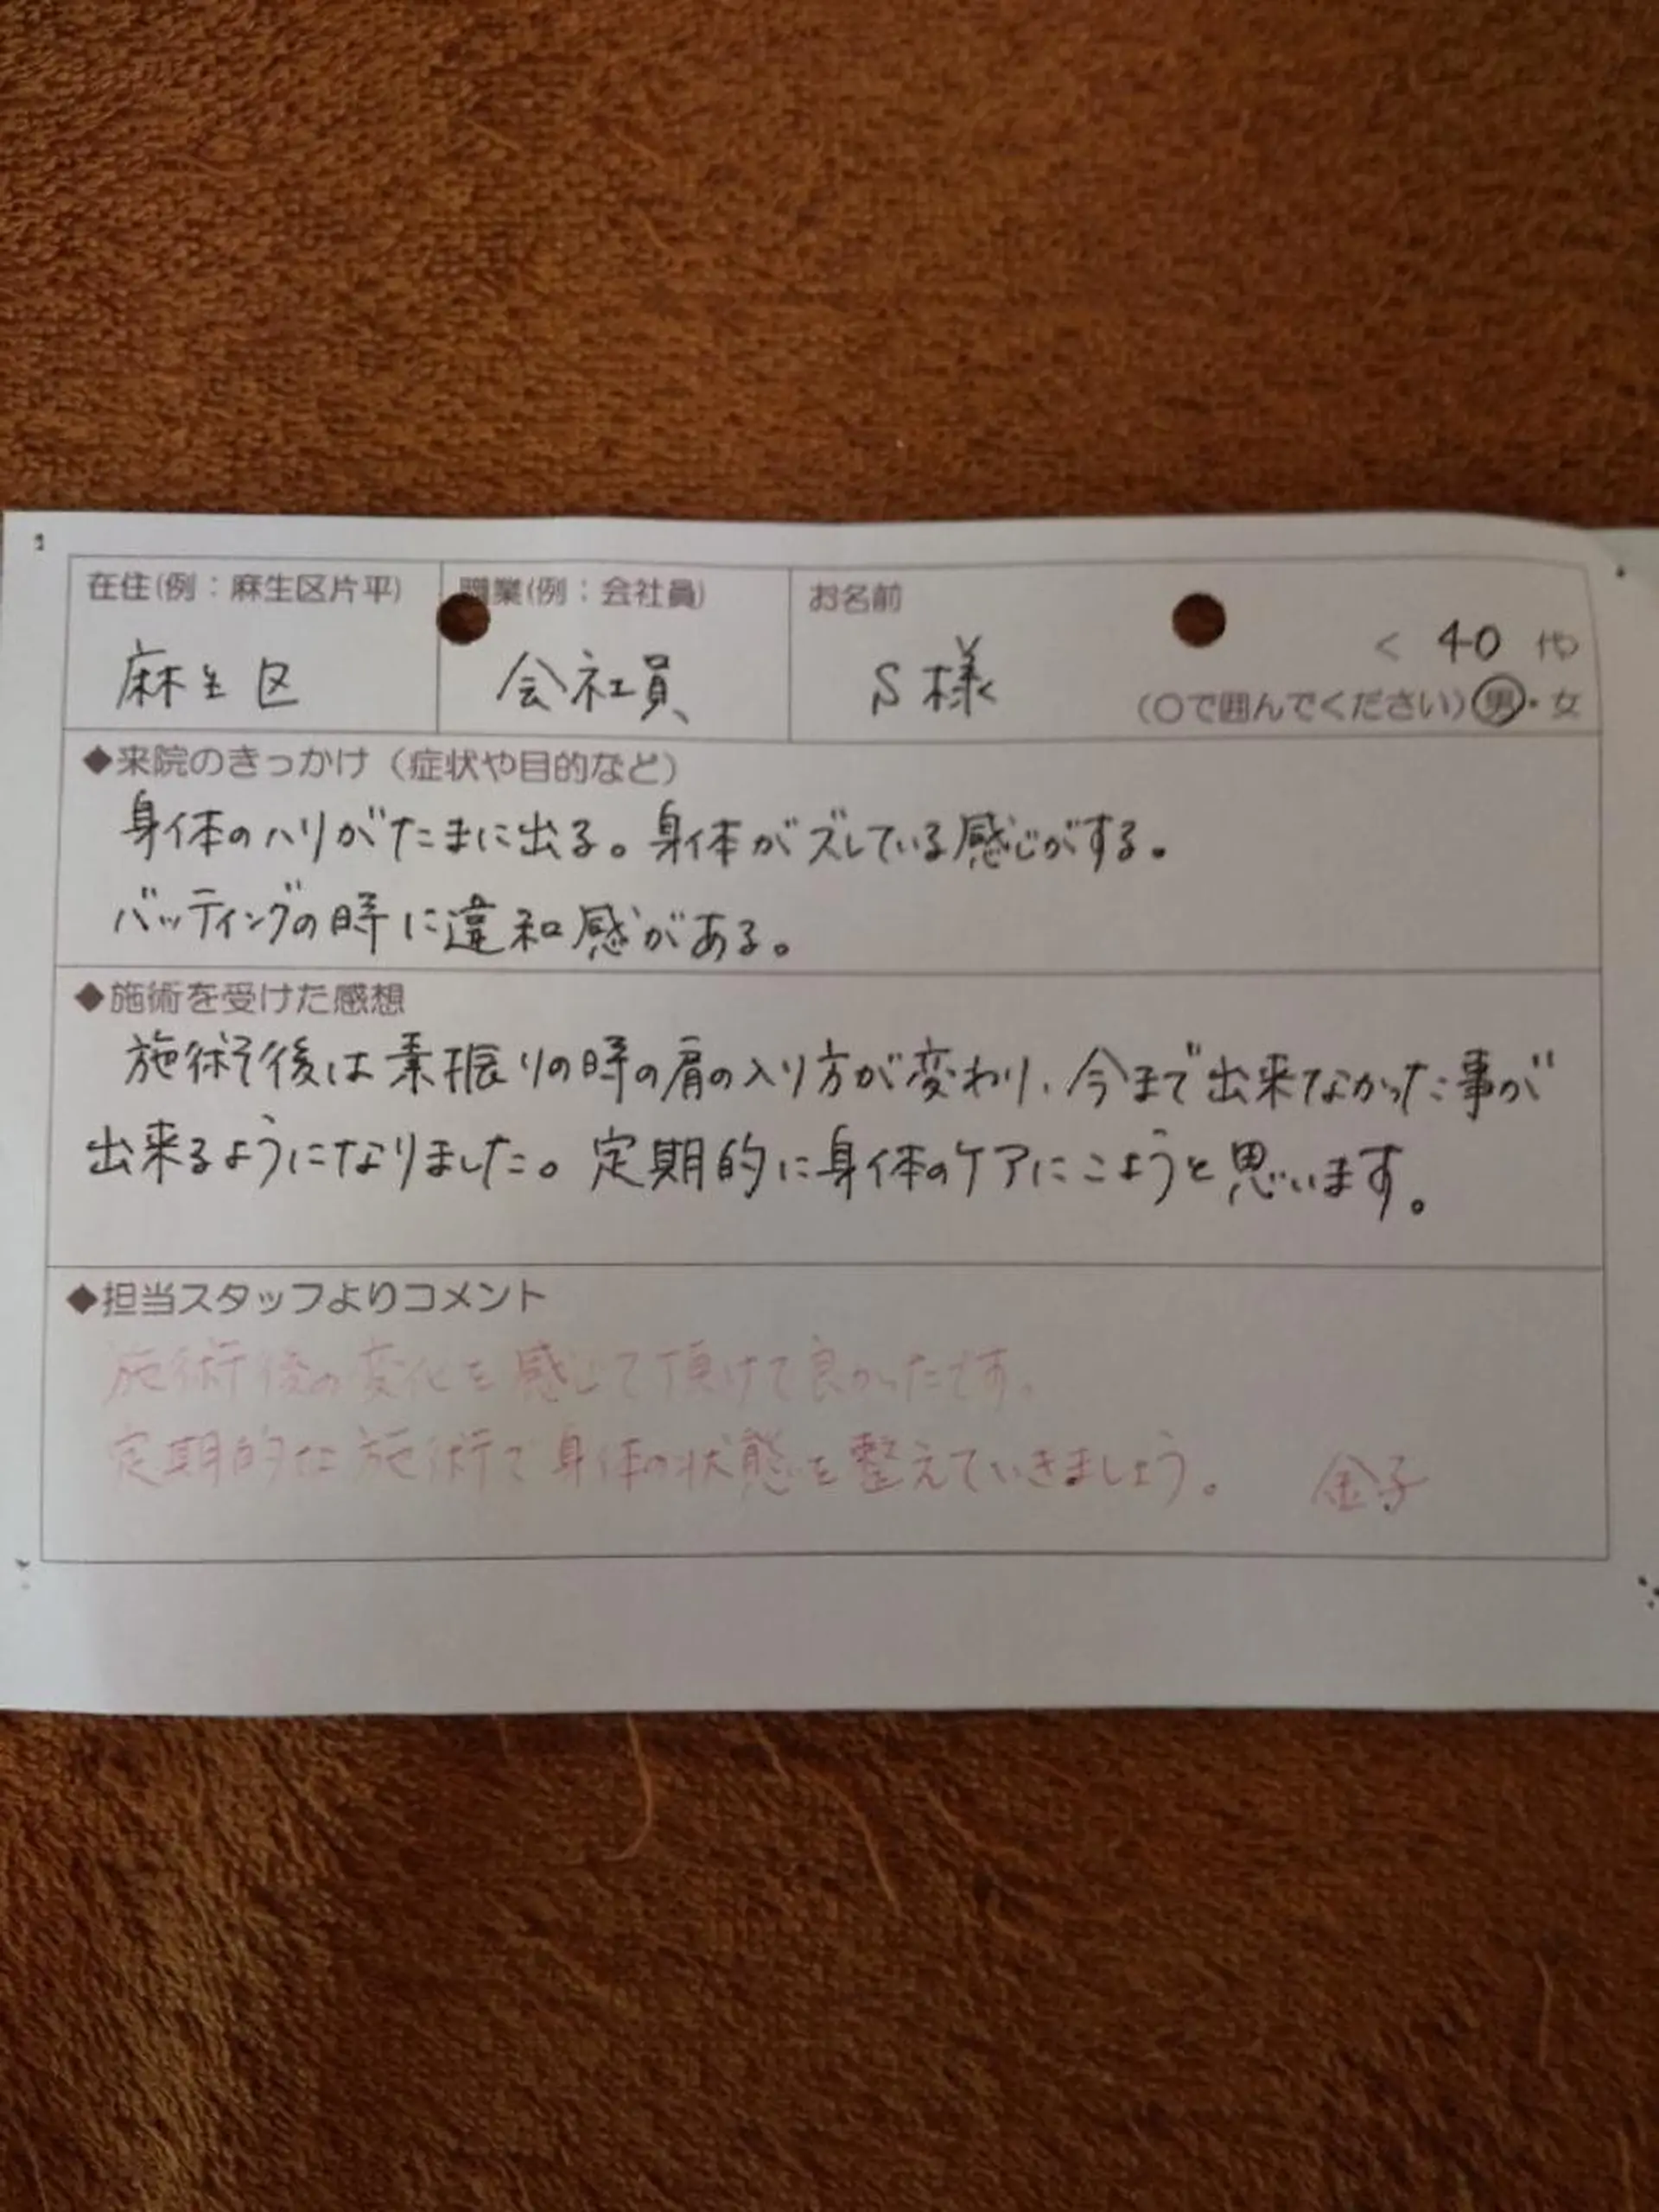 在住(例：麻生区片平)
麻生区
職業(例：会社員)
会社員
お名前
S様
く 40 代
(○で囲んでください)男・女
◆来院のきっかけ（症状や目的など）
身体のハリがたまに出る。身体がズレている感じがする。
バッティングの時に違和感がある。
◆施術を受けた感想
施術後は素振りの時の肩の入り方が変わり、今まで出来なかった事が
出来るようになりました。定期的に身体のケアにこようと思います。
◆担当スタッフよりコメント
施術後の変化を感じて頂けて良かったです。
定期的な施術で身体の状態を整えていきましょう。 金子